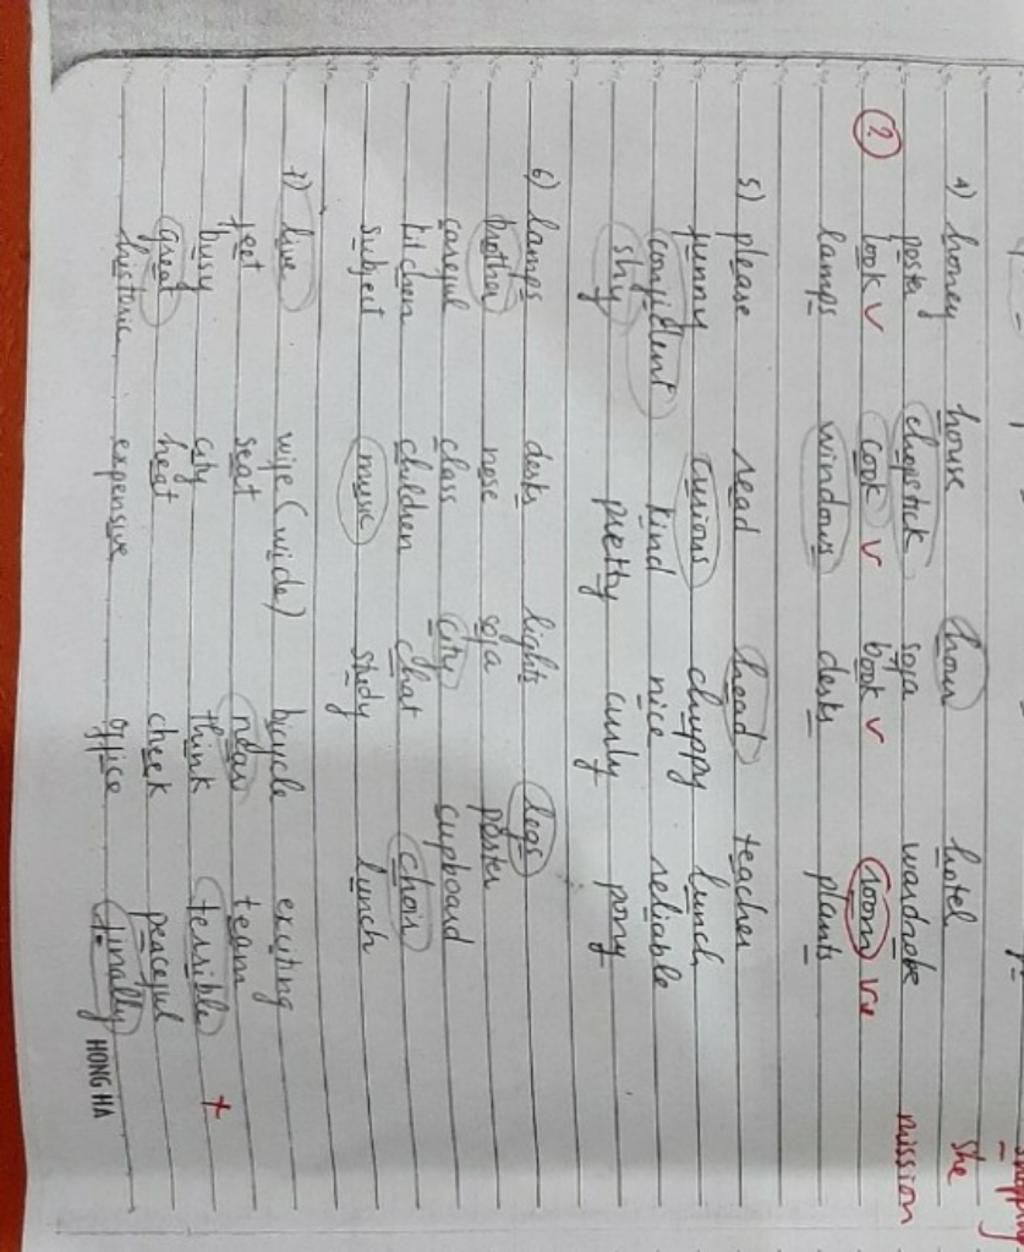 shopping
4) honey house hour hotel she
poster chopstick sofa wardrobe mission
? look v cook v book v room v
lamps windows desks plants
5) please read head teacher
funny curious chuppy lunch
confident kind nice reliable
shy pretty curly pony
6) lamps desks lights legs
brother nose sofa poster
careful class city cupboard
kitchen children chat choir
subject music study lunch
7) live wife (wide) bicycle exciting
feet seat near team
busy city think terrible +
great heat cheek peaceful
historic expensive office finally
HONG HA